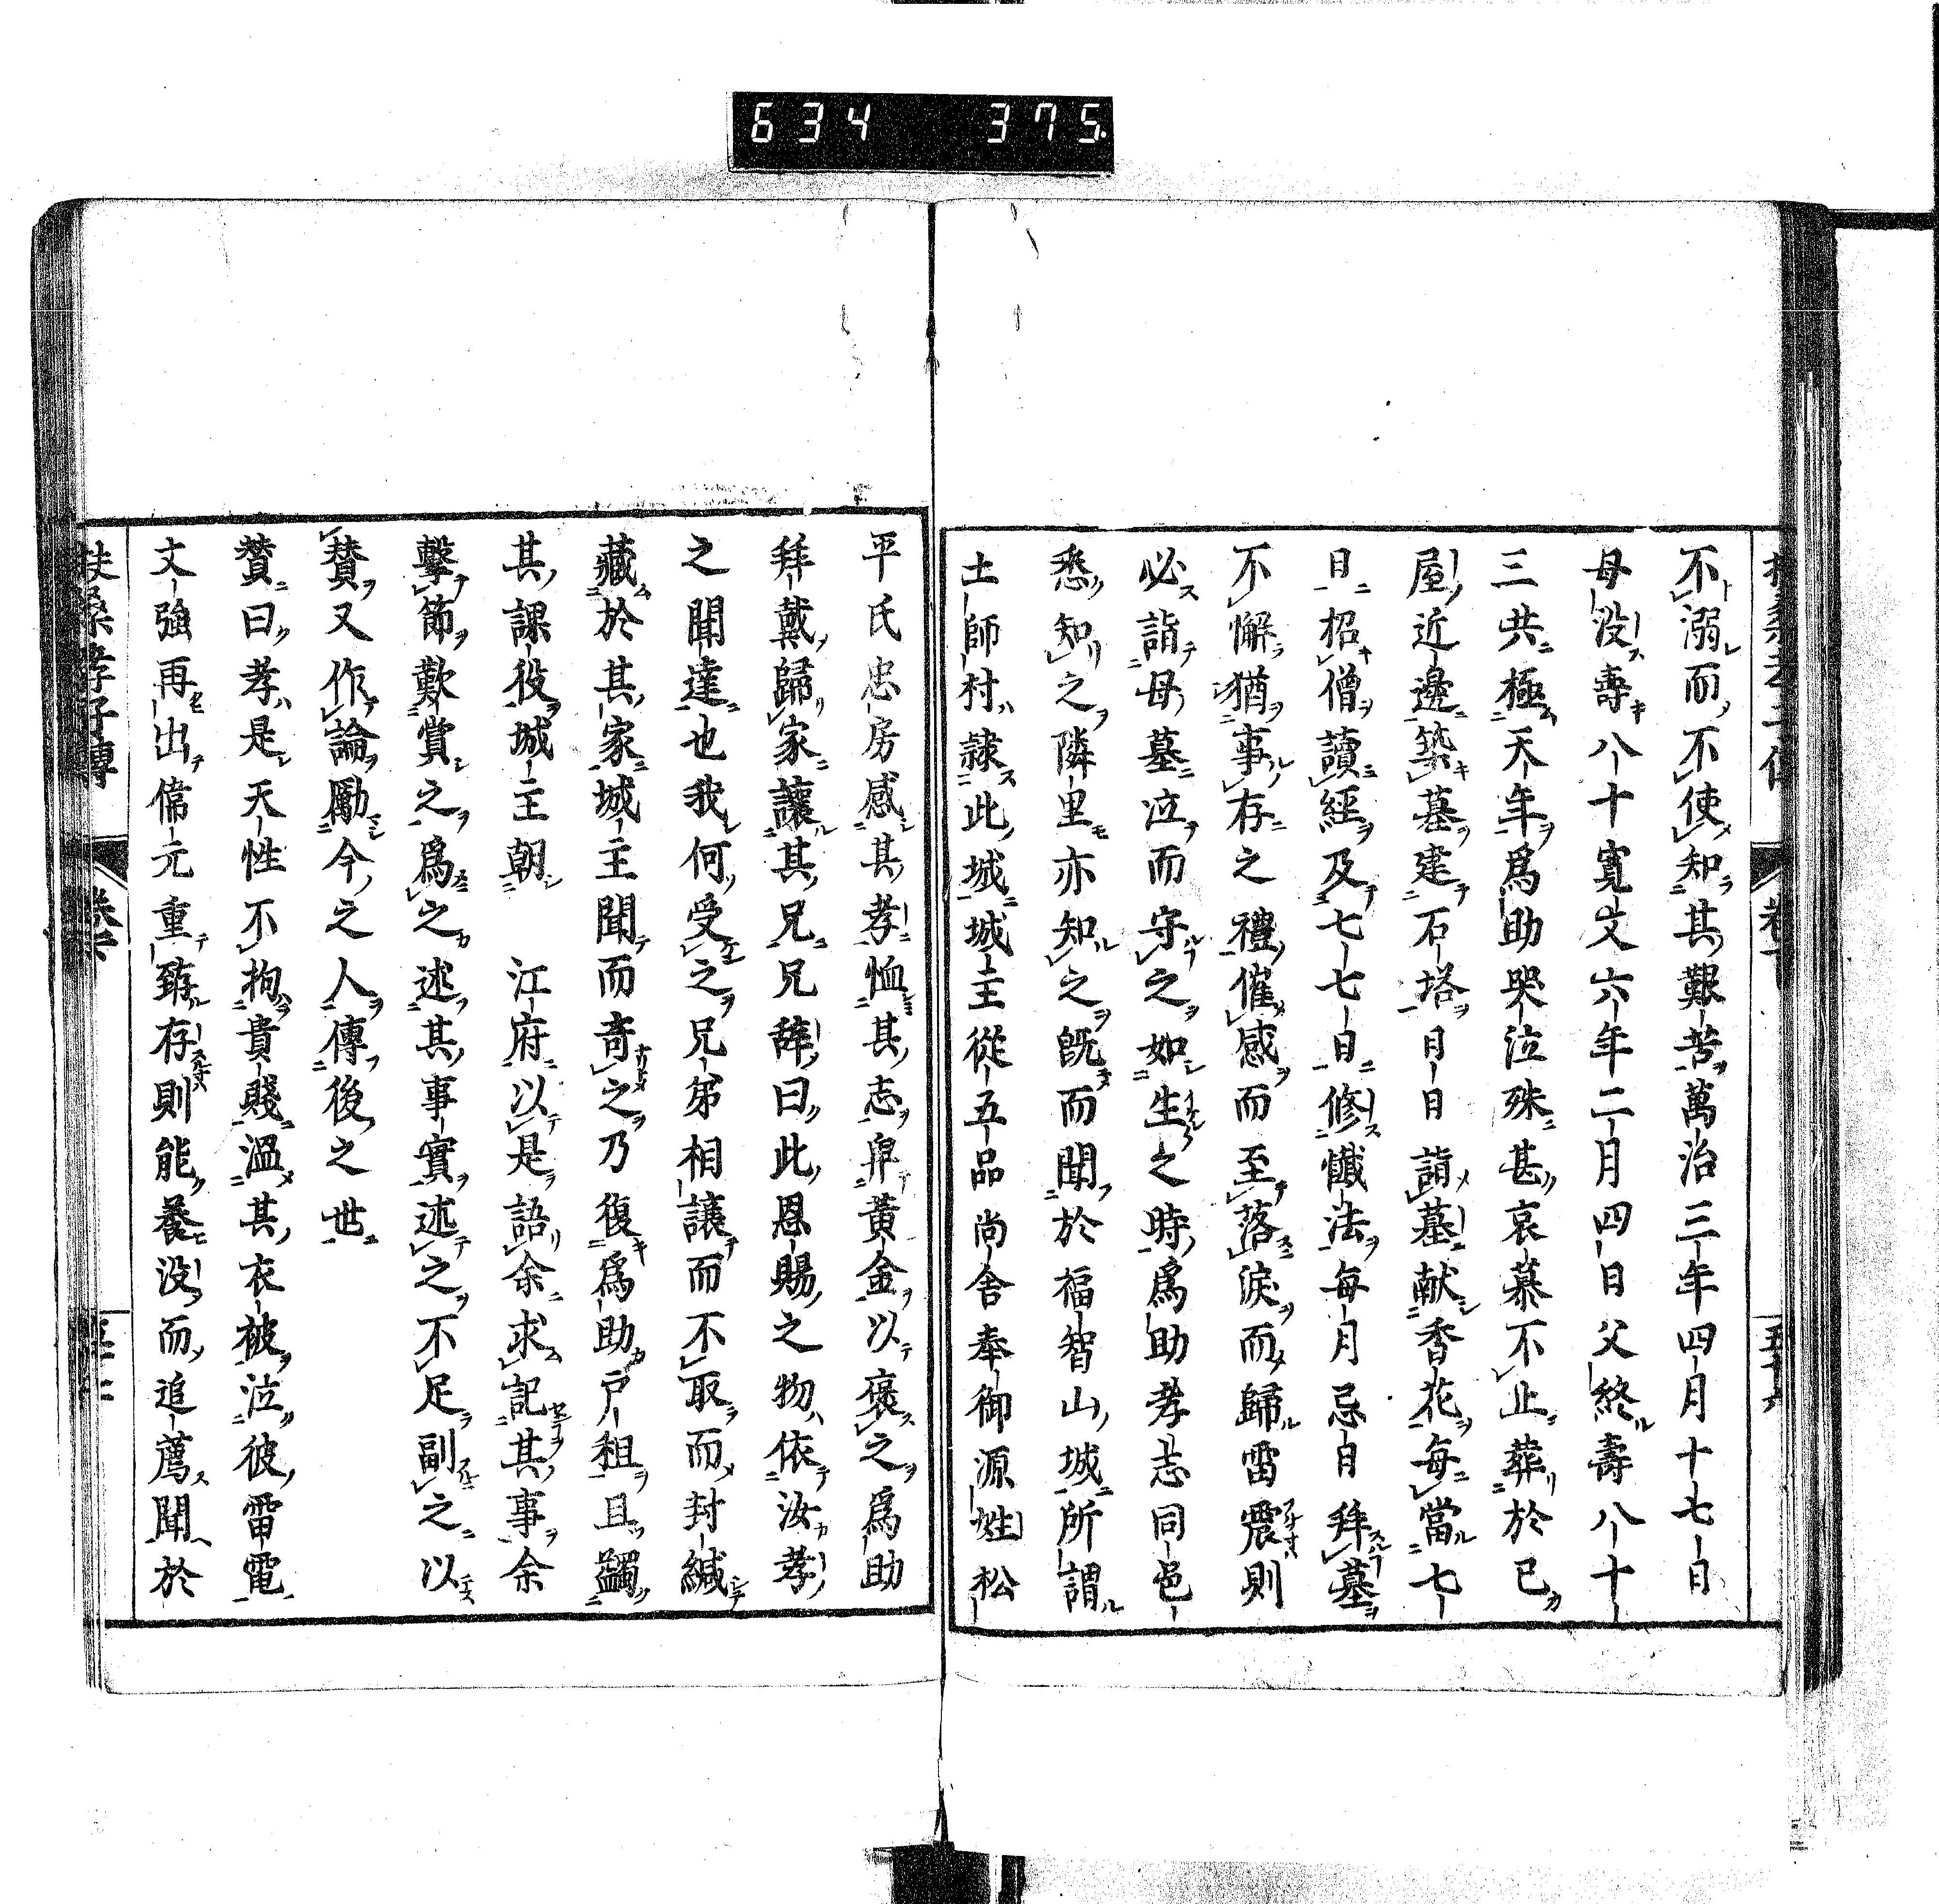 634 375.
不溺而不使知其艱苦萬治三年四月十七日
母沒壽八十寛文六年二月四日父終壽八十
三共極天年爲助哭泣殊甚哀慕不止葬於已
屋近邊築墓建石塔月日詣墓献香花每當七
日招僧讀經及七七日修懺法每月忌日拜墓
不懈猶事存之禮催感而至落淚而歸雷震則
必詣母墓泣而守之如生之時爲助孝志同邑
悉知之隣里亦知之既而聞於福智山城所謂
土師村隷此城城主從五品尚舍奉御源姓松
平氏忠房感其孝恤其志畀黃金以褒之爲助
拜戴歸家讓其兄兄辞曰此恩賜之物依汝孝
之聞達也我何受之兄弟相讓而不取而封緘
藏於其家城主聞而奇之乃復爲助戶租且蠲
其課役城主朝 江府以是語余求記其事余
擊節歎賞之爲之述其事實述之不足副之以
賛又作論勵今之人傳後之世
賛曰孝是天性不拘貴賤溫其衣被泣彼雷電
文強再出偉元重臻存則能養沒而追薦聞於
扶桑孝子傳